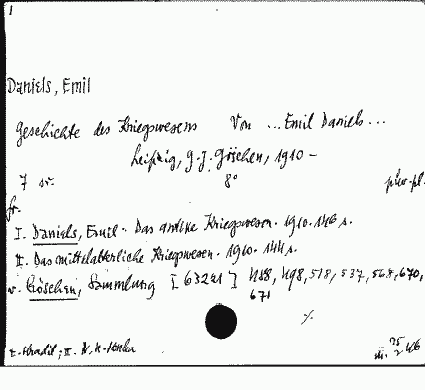 1
Daniels, Emil
Geschichte des Kriegswesens Von ... Emil Daniels ...
Leipzig, G. J. Göschen, 1910 –
7 sv. 8°
I. Daniels, Emil. Das antike Kriegswesen. 1910. 146 s.
II. Das mittelalterliche Kriegswesen. 1910. 144 s.
v. Göschen, Sammlung [63221] 488, 498, 518, 537, 568, 670,
671